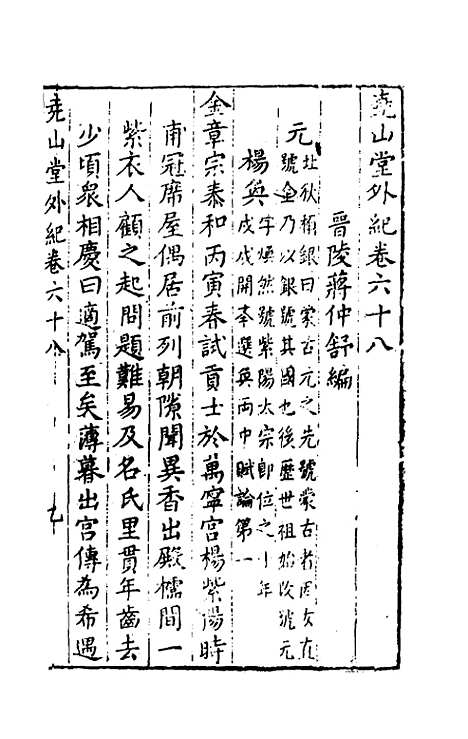 堯山堂外紀卷六十八
晉陵蔣仲舒編
元
北狄稱銀曰蒙古元之先號蒙古者因女直
號金乃以銀號其國也後歷世祖始改號元
楊奐
字煥然號紫陽太宗卽位之十年
戊戌開本選奐兩中賦論第一
金章宗泰和丙寅春試貢士於萬寧宮楊紫陽時
甫冠席屋偶居前列朝隙聞異香出殿櫺間一
紫衣人顧之起問題難易及名氏里貫年齒去
少頃衆相慶曰適駕至矣薄暮出宮傳為希遇
堯山堂外紀卷六十八